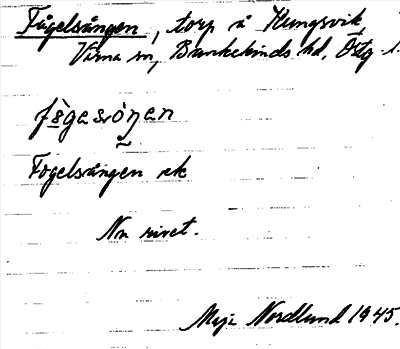 Fågelsången, torp å Kungsvik,
Värna sn, Bankekinds hd, Östg. l.
fògəsóŋən
Fogelsången ek
Nu rivet.
Nordlund 1945.